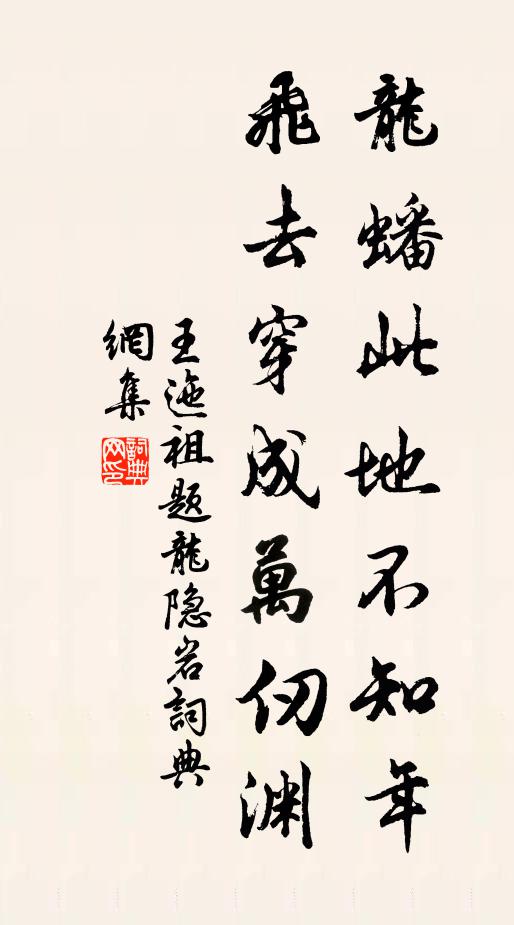 龍蟠此地不知年
飛去穿成萬仞淵
王迤祖题龍隐岩詞典
網集
詞典網印